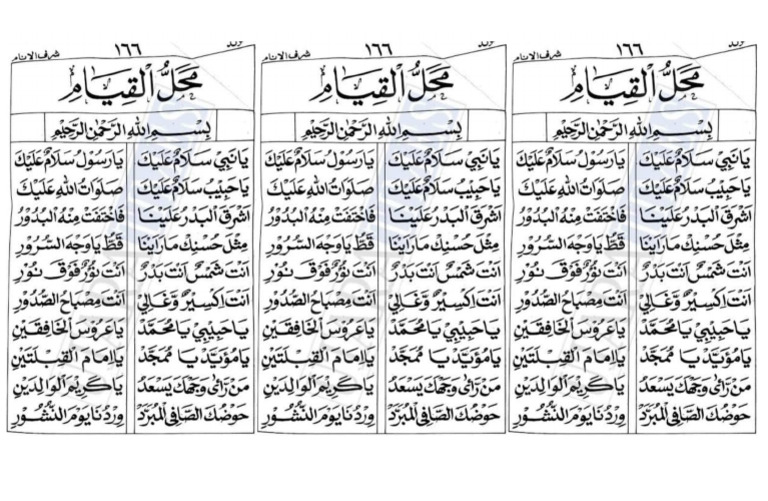 ١٦٦ شرف الأنام
محل القيام
بسم الله الرحمن الرحيم
يَا نَبِي سَلَامٌ عَلَيْكَ يَا رَسُولْ سَلَامٌ عَلَيْكَ
يَا حَبِيبْ سَلَامٌ عَلَيْكَ صَلَوَاتُ اللهِ عَلَيْكَ
اَشْرَقَ الْبَدْرُ عَلَيْنَا فَاخْتَفَتْ مِنْهُ الْبُدُوْرُ
مِثْلَ حُسْنِكَ مَا رَاَيْنَا قَطُّ يَا وَجْهَ السُّرُوْرِ
اَنْتَ شَمْسٌ اَنْتَ بَدْرٌ اَنْتَ نُوْرٌ فَوْقَ نُوْرٍ
اَنْتَ اِكْسِيْرٌ وَّغَالِيْ اَنْتَ مِصْبَاحُ الصُّدُوْرِ
يَا حَبِيْبِيْ يَا مُحَمَّدْ يَا عَرُوْسَ الْخَافِقَيْنِ
يَا مُؤَيَّدْ يَا مُمَجَّدْ يَا اِمَامَ الْقِبْلَتَيْنِ
مَنْ رَاٰى وَجْهَكَ يَسْعَدُ يَا كَرِيْمَ الْوَالِدَيْنِ
حَوْضُكَ الصَّافِي الْمُبَرَّدْ وِرْدُنَا يَوْمَ النُّشُوْرِ
١٦٦ شرف الأنام
محل القيام
بسم الله الرحمن الرحيم
يَا نَبِي سَلَامٌ عَلَيْكَ يَا رَسُولْ سَلَامٌ عَلَيْكَ
يَا حَبِيبْ سَلَامٌ عَلَيْكَ صَلَوَاتُ اللهِ عَلَيْكَ
اَشْرَقَ الْبَدْرُ عَلَيْنَا فَاخْتَفَتْ مِنْهُ الْبُدُوْرُ
مِثْلَ حُسْنِكَ مَا رَاَيْنَا قَطُّ يَا وَجْهَ السُّرُوْرِ
اَنْتَ شَمْسٌ اَنْتَ بَدْرٌ اَنْتَ نُوْرٌ فَوْقَ نُوْرٍ
اَنْتَ اِكْسِيْرٌ وَّغَالِيْ اَنْتَ مِصْبَاحُ الصُّدُوْرِ
يَا حَبِيْبِيْ يَا مُحَمَّدْ يَا عَرُوْسَ الْخَافِقَيْنِ
يَا مُؤَيَّدْ يَا مُمَجَّدْ يَا اِمَامَ الْقِبْلَتَيْنِ
مَنْ رَاٰى وَجْهَكَ يَسْعَدُ يَا كَرِيْمَ الْوَالِدَيْنِ
حَوْضُكَ الصَّافِي الْمُبَرَّدْ وِرْدُنَا يَوْمَ النُّشُوْرِ
١٦٦ شرف الأنام
محل القيام
بسم الله الرحمن الرحيم
يَا نَبِي سَلَامٌ عَلَيْكَ يَا رَسُولْ سَلَامٌ عَلَيْكَ
يَا حَبِيبْ سَلَامٌ عَلَيْكَ صَلَوَاتُ اللهِ عَلَيْكَ
اَشْرَقَ الْبَدْرُ عَلَيْنَا فَاخْتَفَتْ مِنْهُ الْبُدُوْرُ
مِثْلَ حُسْنِكَ مَا رَاَيْنَا قَطُّ يَا وَجْهَ السُّرُوْرِ
اَنْتَ شَمْسٌ اَنْتَ بَدْرٌ اَنْتَ نُوْرٌ فَوْقَ نُوْرٍ
اَنْتَ اِكْسِيْرٌ وَّغَالِيْ اَنْتَ مِصْبَاحُ الصُّدُوْرِ
يَا حَبِيْبِيْ يَا مُحَمَّدْ يَا عَرُوْسَ الْخَافِقَيْنِ
يَا مُؤَيَّدْ يَا مُمَجَّدْ يَا اِمَامَ الْقِبْلَتَيْنِ
مَنْ رَاٰى وَجْهَكَ يَسْعَدُ يَا كَرِيْمَ الْوَالِدَيْنِ
حَوْضُكَ الصَّافِي الْمُبَرَّدْ وِرْدُنَا يَوْمَ النُّشُوْرِ